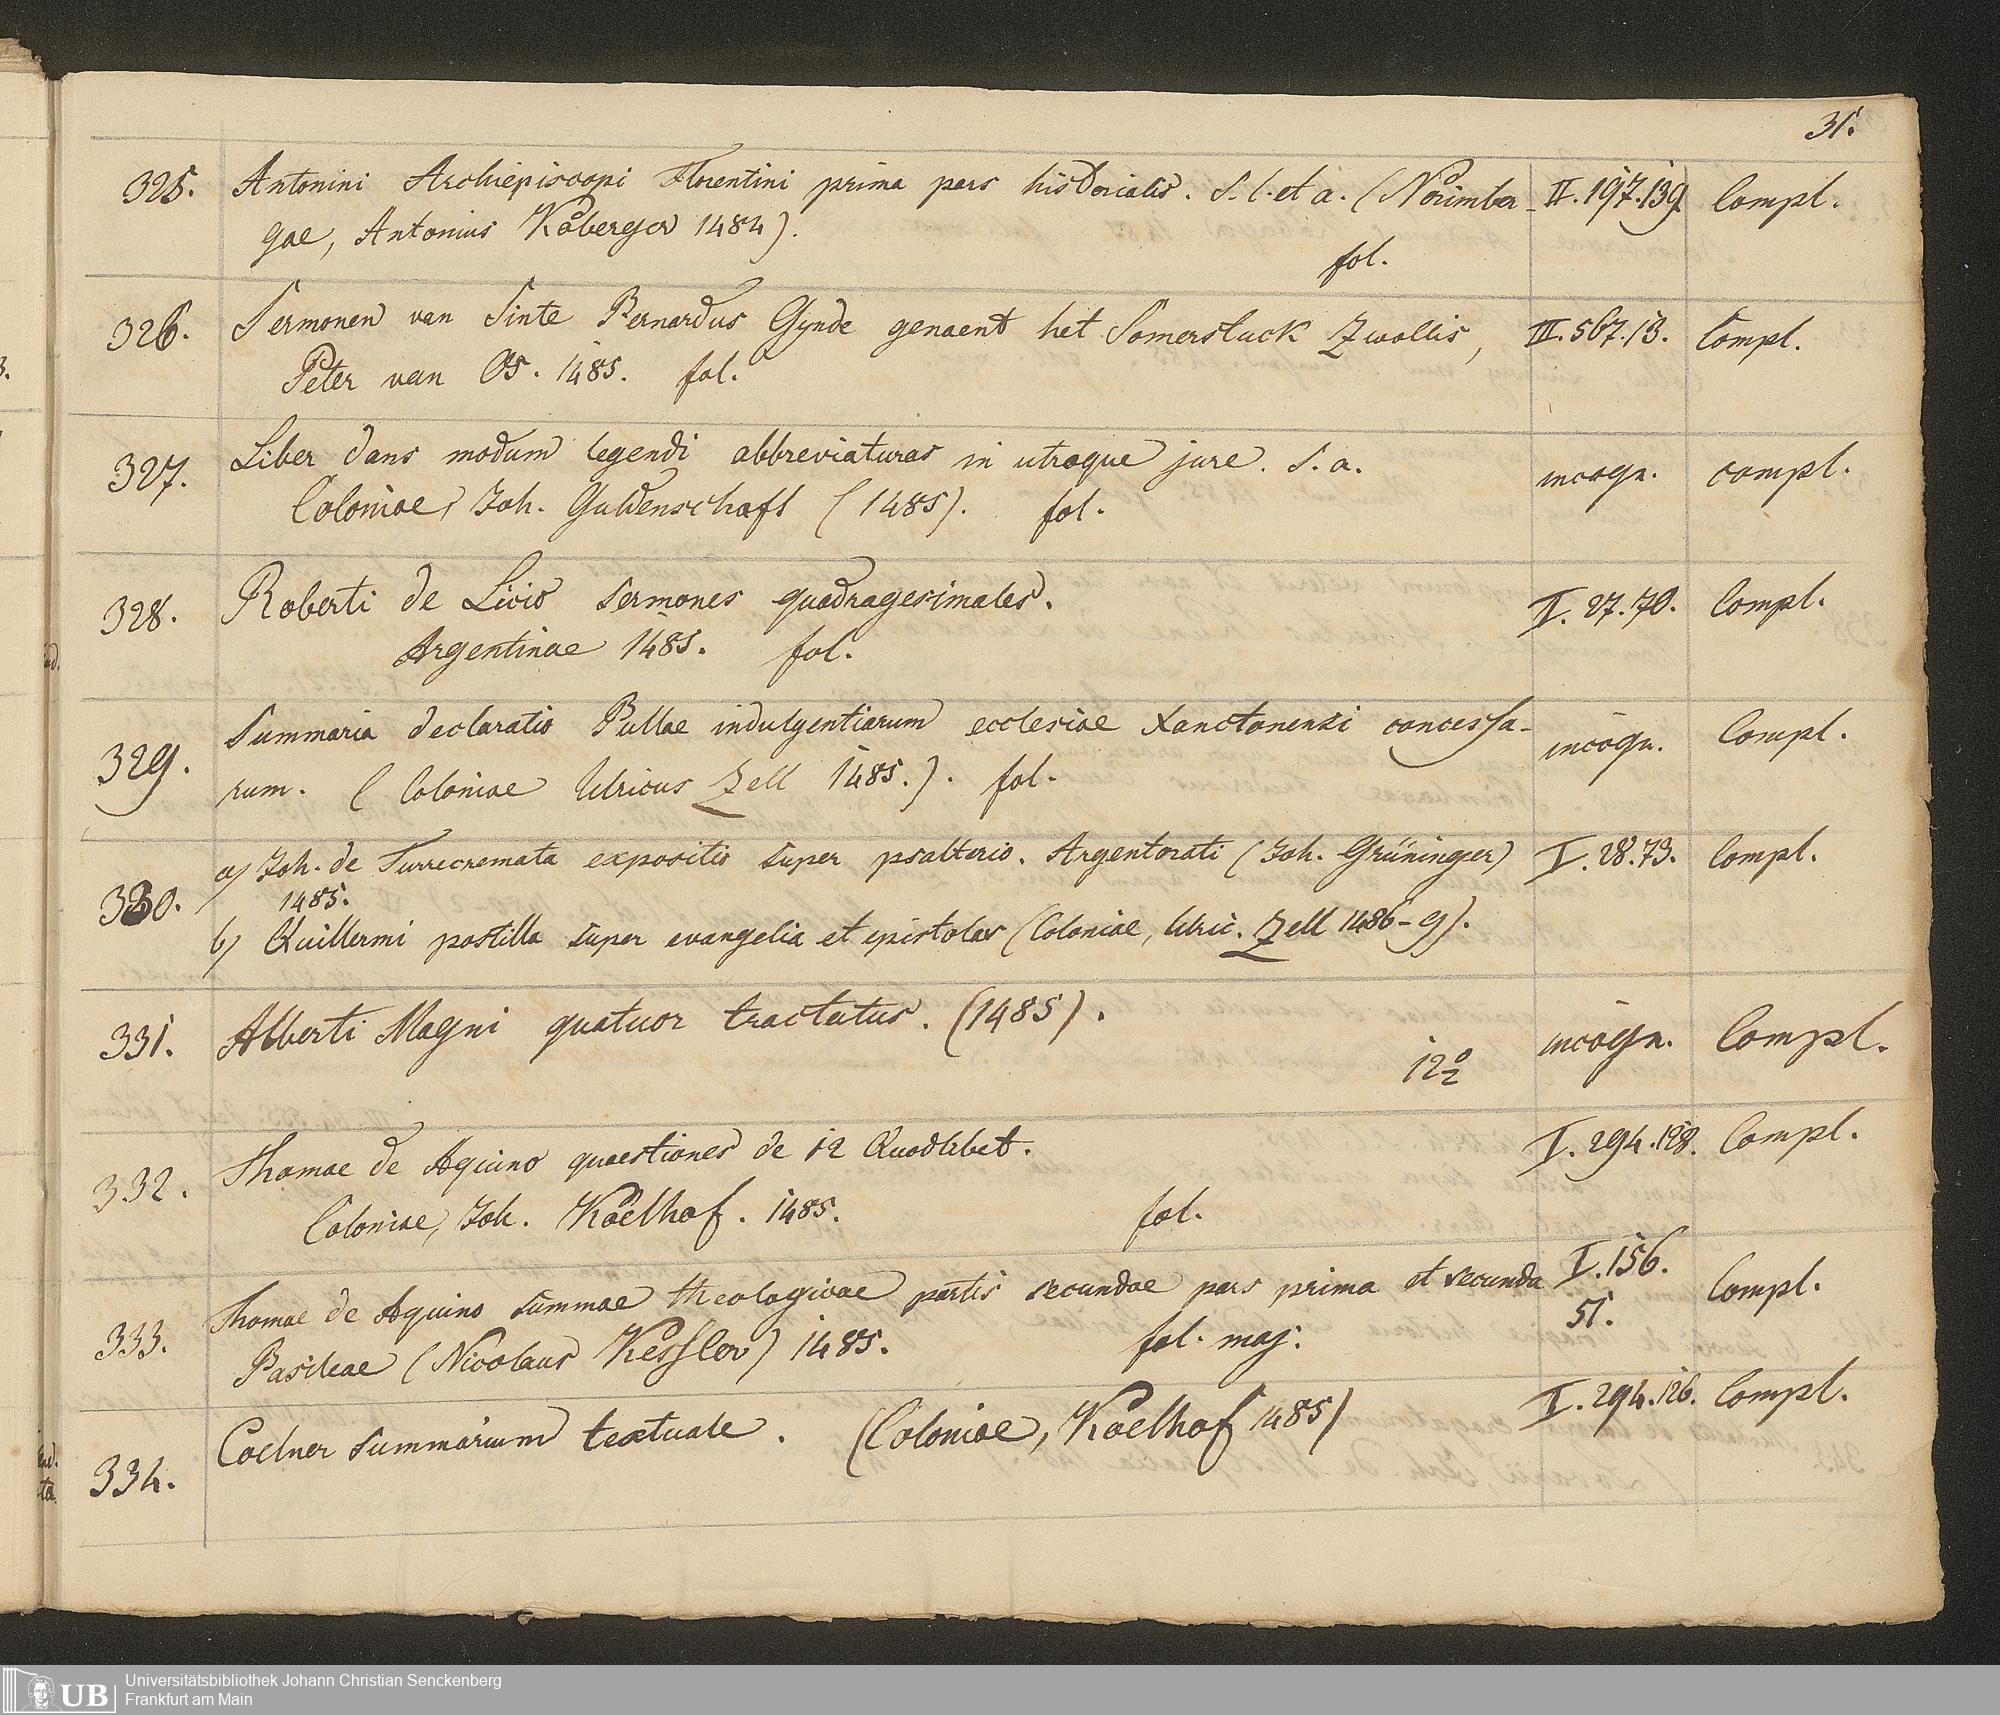 31.
325. Antonini Archiepiscopi Florentini prima pars historialis. S. l. et a. (Norimber- II. 197. 139 Compl.
gae, Antonius Koberger 1484).
fol.
326. Sermonen van Sinte Bernardus Gynde genaent het Somerstuck Zwollis, III. 567. 13. Compl.
Peter van Os. 1485. fol.
327. Liber dans modum legendi abbreviaturas in utroque jure. S. a. incogn. compl.
Coloniae, Joh. Guldenschaff (1485). fol.
328. Roberti de Licio sermones quadragesimales. I. 27. 70. Compl.
Argentinae 1485. fol.
329. Summaria declaratio Bullae indulgentiarum ecclesiae Xanctonensi concessa- incogn. Compl.
rum. (Coloniae Ulricus Zell 1485.). fol.
330. a) Joh. de Turrecremata expositio super psalterio. Argentorati (Joh. Grüninger) I. 28. 73. Compl.
1485.
b) Quillermi postilla super evangelia et epistolas (Coloniae, Ulric. Zell 1486-9).
331. Alberti Magni quatuor tractatus. (1485). incogn. Compl.
12º
332. Thomae de Aquino quaestiones de 12 Quodlibet. I. 294. 128. Compl.
Coloniae, Joh. Koelhof. 1485. fol.
333. Thomae de Aquino summae theologicae partis secundae pars prima et secunda I. 156. 51. Compl.
Basileae (Nicolaus Kessler) 1485. fol. maj.
334. Coelner summarium textuale. (Coloniae, Koelhof 1485) I. 294. 126. Compl.
UB
Universitätsbibliothek Johann Christian Senckenberg
Frankfurt am Main